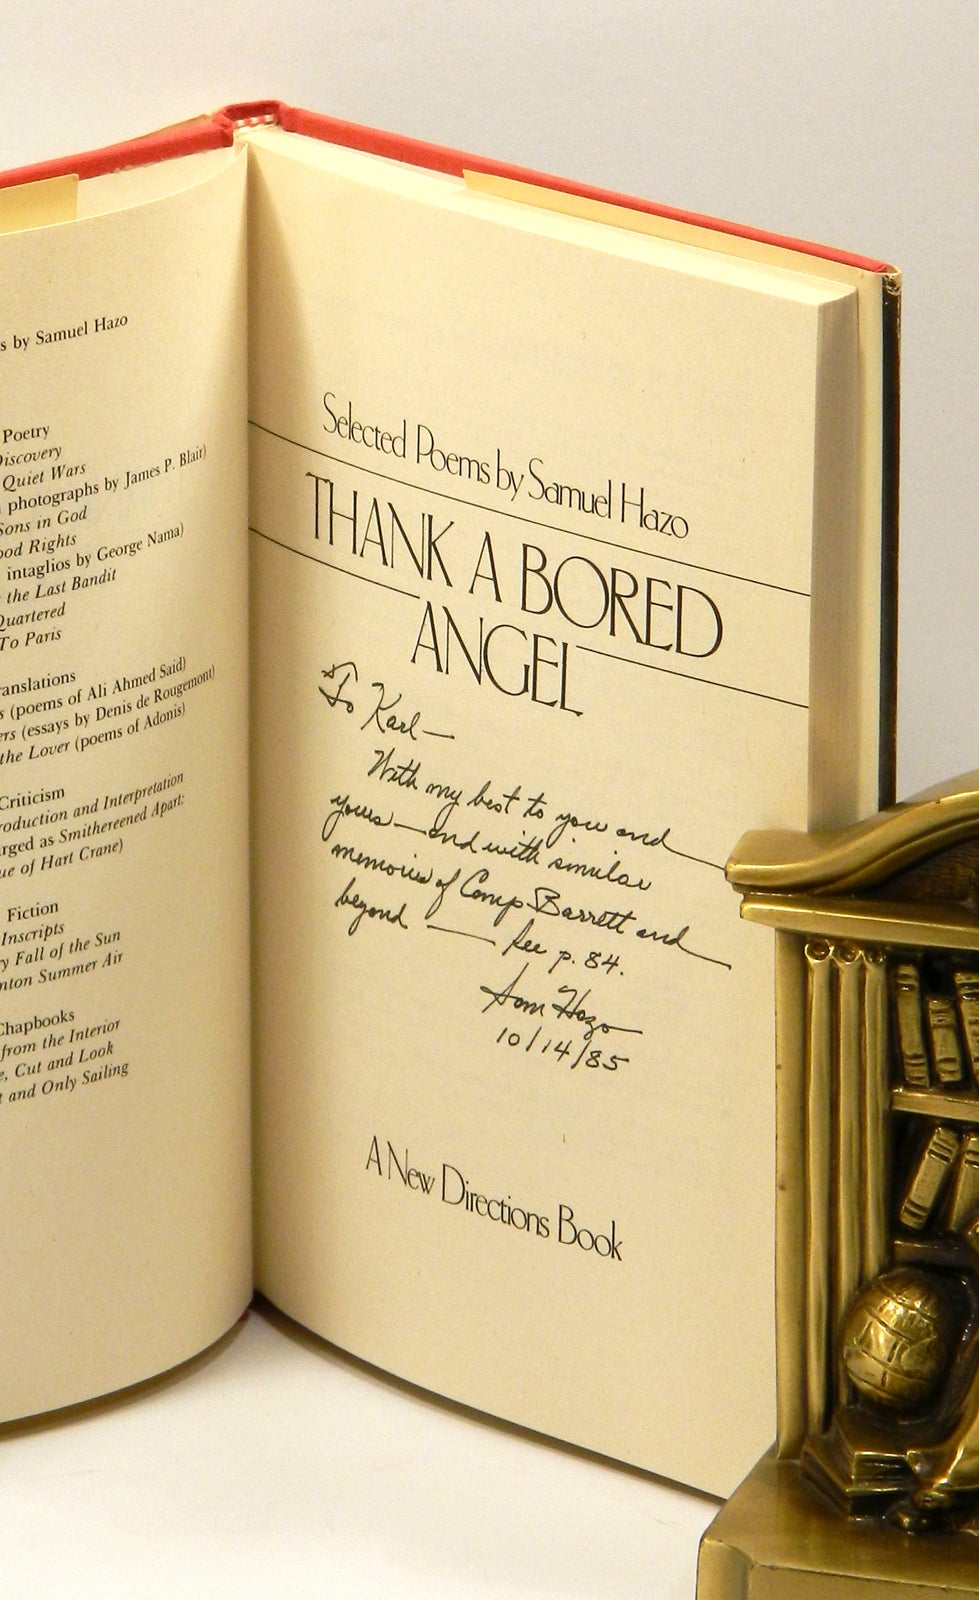 s by Samuel Hazo
Poetry
Discovery
Quiet Wars
photographs by James P. Blair)
Sons in God
ood Rights
intaglios by George Nama)
the Last Bandit
Quartered
To Paris
ranslations
s (poems of Ali Ahmed Said)
ers (essays by Denis de Rougemont)
the Lover (poems of Adonis)
Criticism
roduction and Interpretation
rged as Smithereened Apart:
ue of Hart Crane)
Fiction
Inscripts
y Fall of the Sun
nton Summer Air
Chapbooks
from the Interior
e, Cut and Look
t and Only Sailing
Selected Poems by Samuel Hazo
THANK A BORED
ANGEL
To Karl—
With my best to you and
yours—and with similar
memories of Camp Barrett and
beyond — See p. 84.
Sam Hazo
10/14/85
A New Directions Book